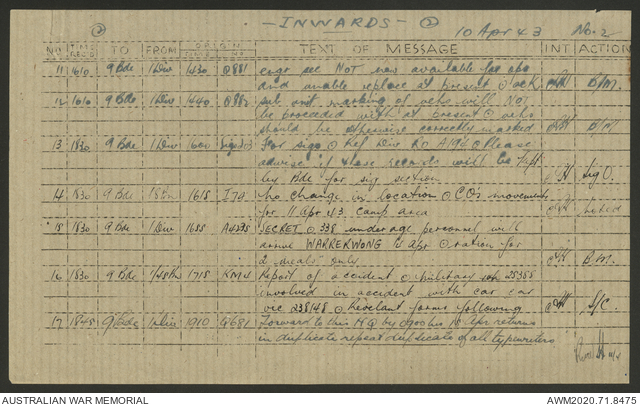 ② - INWARDS - ②
10 Apr 43 No. 2
NO TIME REC'D TO FROM ORIGIN TIME NO TEXT OF MESSAGE INT ACTION
11 1610 9 Bde 1 Div 1430 Q881 engr sec NOT now available for
and unable replace at present O ack B/M.
12 1610 9 Bde 1 Div 1440 Q882 sub unit marking of vehs will NOT
be proceeded with at present O vehs
should be otherwise correctly marked B/M
13 1830 9 Bde 1 Div 1600 For sigs O Ref Div RO A196 O Please
advise if these records will be
by Bde for sig section Sig O.
14 1830 9 Bde 1615 I74 No change in location O CO's movements
for 11 Apr 43 camp area Noted
15 1830 9 Bde 1 Div 1655 SECRET O 338 under age personnel will
arrive WARRERWONG Apr O ration for
2 meals only B.M.
16 1830 9 Bde 1/45th 1715 KM4 Report of accident O Military
involved in accident with car car
wc 238148 O Revelant forms following S/C.
17 1845 9 Bde 1 Div 1910 Q681 Forward to this HQ by 0900 hrs Apr returns
in duplicate repeat duplicate of all typewriters
AUSTRALIAN WAR MEMORIAL
AWM2020.71.8475